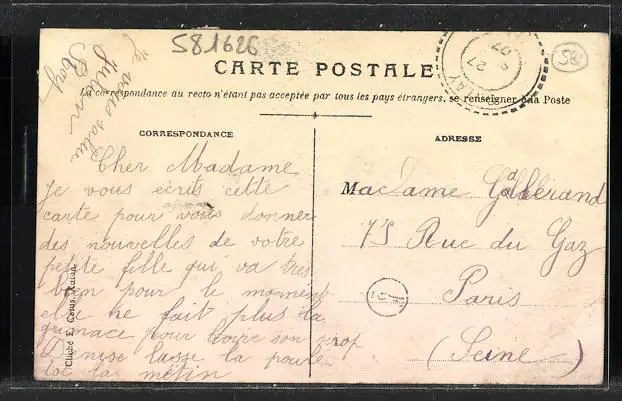 581626
58
CARTE POSTALE
27
07
La correspondance au recto n'étant pas acceptée par tous les pays étrangers, se renseigner à la Poste
CORRESPONDANCE
Je vous salue
Julien
Roy
Cher Madame
Je vous ecrits cette
carte pour vous donner
des nouvelles de votre
petite fille qui va tres
bien pour le moment
elle ne fait plus la
grimace pour boire son sirop
Denise laisse la poule
la metin
Cliché E. Catus
ADRESSE
Madame
75 Rue du Gaz
Paris
(Seine)